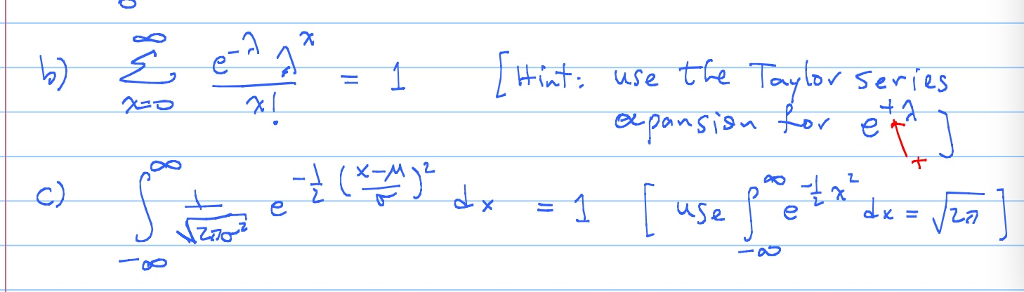 b) ∑_{x=0}^{∞} \frac{e^{-λ} λ^x}{x!} = 1 [Hint: use the Taylor series
expansion for e^{+λ}]
+
c) ∫_{-∞}^{∞} \frac{1}{\sqrt{2πσ^2}} e^{-\frac{1}{2} (\frac{x-μ}{σ})^2} dx = 1 [use ∫_{-∞}^{∞} e^{-\frac{1}{2} x^2} dx = \sqrt{2π}]